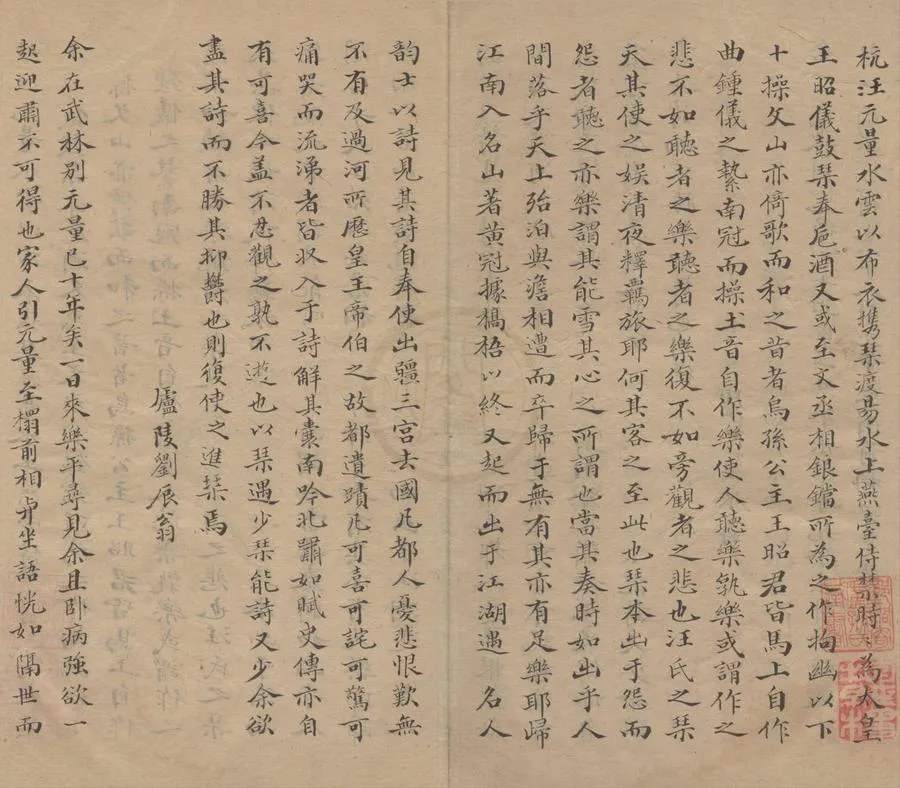 杭汪元量水雲以布衣携琴渡易水上燕臺侍禁時〻為太皇
王昭儀鼓琴奉巵酒又或至文丞相銀鐺所為之作拘幽以下
十操文山亦倚歌而和之昔者烏孫公主王昭君皆馬上自作
曲鍾儀之縶南冠而操土音自作樂使人聽樂孰樂或謂作之
悲不如聽者之樂聽者之樂復不如旁觀者之悲也汪氏之琴
天其使之娱清夜釋羈旅耶何其客之至此也琴本出于怨而
怨者聽之亦樂謂其能雪其心之所謂也當其奏時如出乎人
間落乎天上殆泊與澹相遭而卒歸于無有其亦有足樂耶歸
江南入名山著黄冠據槁梧以終又起而出于江湖遇名人
韵士以詩見其詩自奉使出疆三宫去國凡都人憂悲恨歎無
不有及過河所歷皇王帝伯之故都遺蹟凡可喜可詫可驚可
痛哭而流涕者皆收入于詩解其囊南吟北嘯如賦史傳亦自
有可喜今盖不忍觀之孰不遊也以琴遇少琴能詩又少余欲
盡其詩而不勝其抑欝也則復使之進琴焉
廬陵劉辰翁
余在武林别元量已十年矣一日來樂平尋見余且卧病强欲一
起迎肅不可得也家人引元量至榻前相弔坐語恍如隔世而